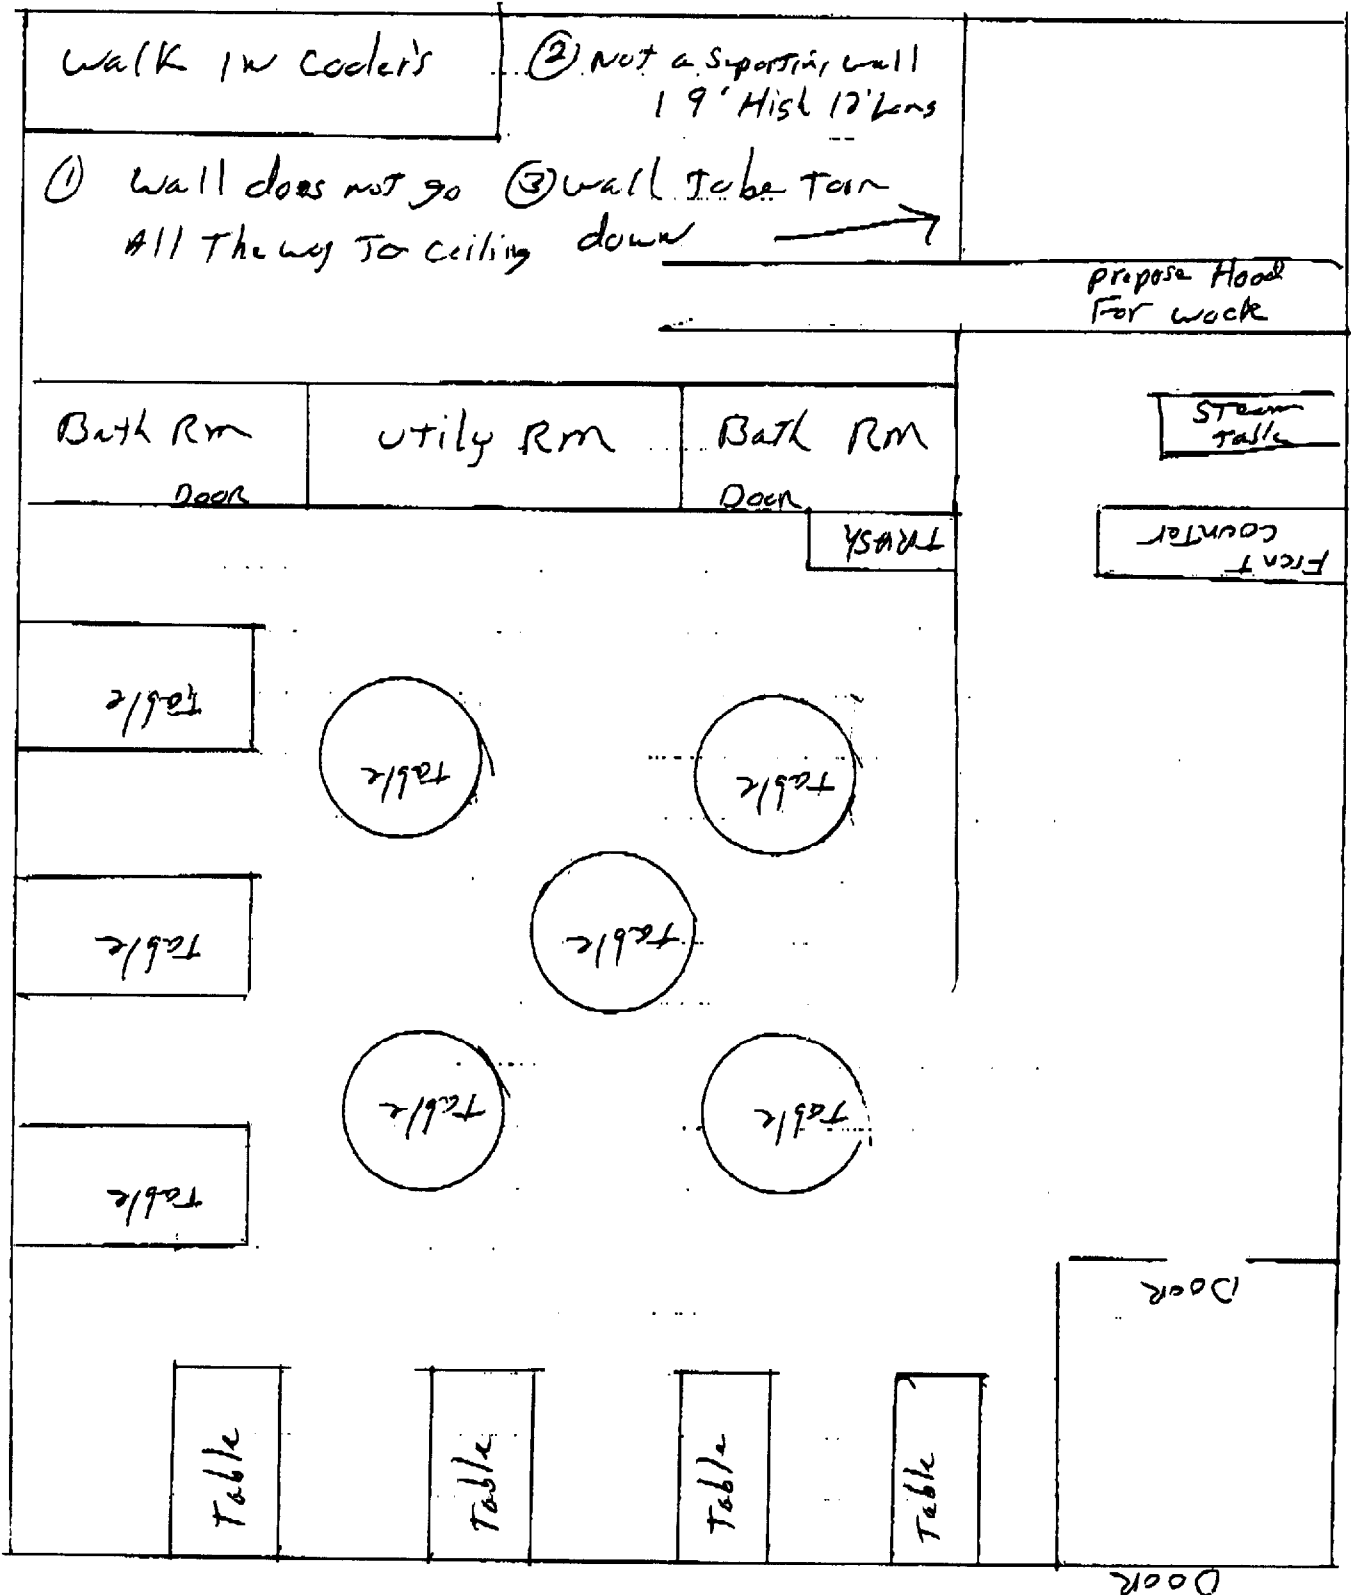 Walk IN Cooler's
② Not a Suporting wall
1 9' High 12' Long
① Wall does not go
All The way To ceiling
③ wall To be Torn
down
propose Hood
For wock
Bath Rm
DOOR
Utily Rm
Bath Rm
Door
STeam
Table
TRASH
Front
Counter
Table
Table
Table
Table
Table
Table
Table
Table
DOOR
Table
Table
Table
Table
DOOR